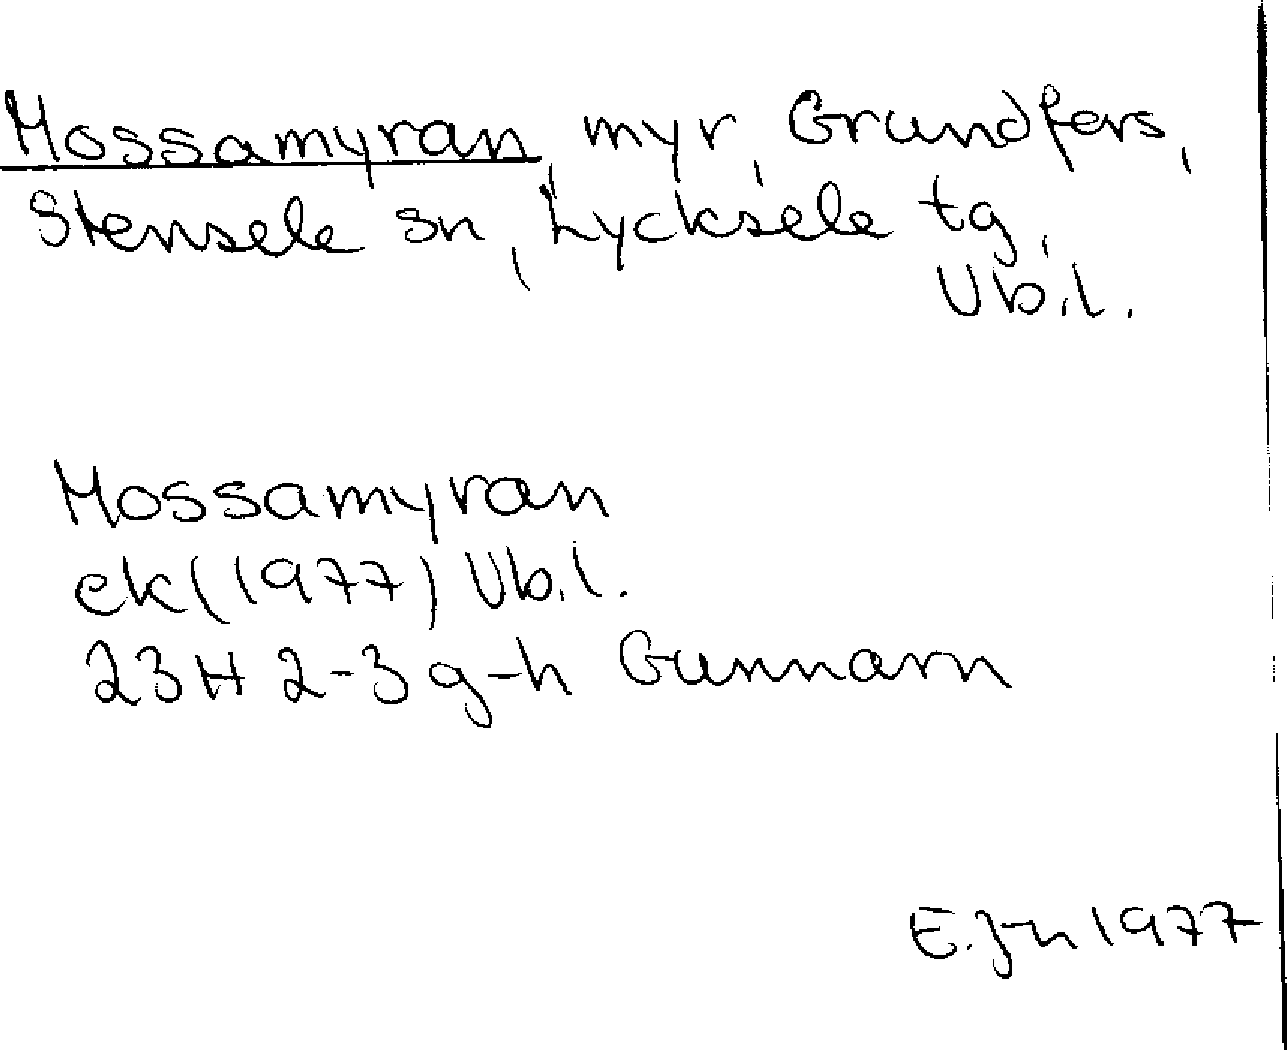 Mossamyran, myr, Grundfors,
Stensele sn, Lycksele tg,
Vb.l.
Mossamyran
ek(1977) Vb.l.
23H 2-3 g-h Gunnarn
E.Jn 1977